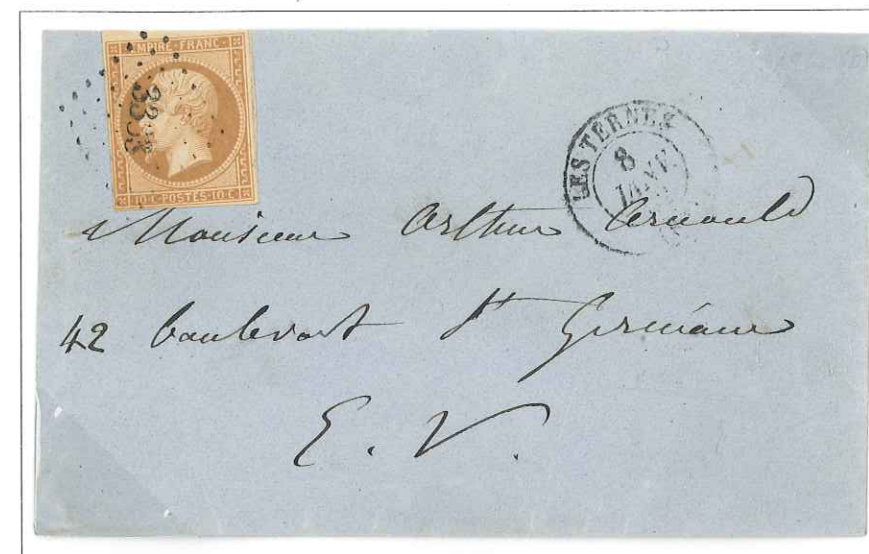 EMPIRE · FRANC ·
10 · C · POSTES · 10 · C ·
LES TERNES
8
JANV
Monsieur Arthur Arnould
42 boulevart St Germain
E. V.